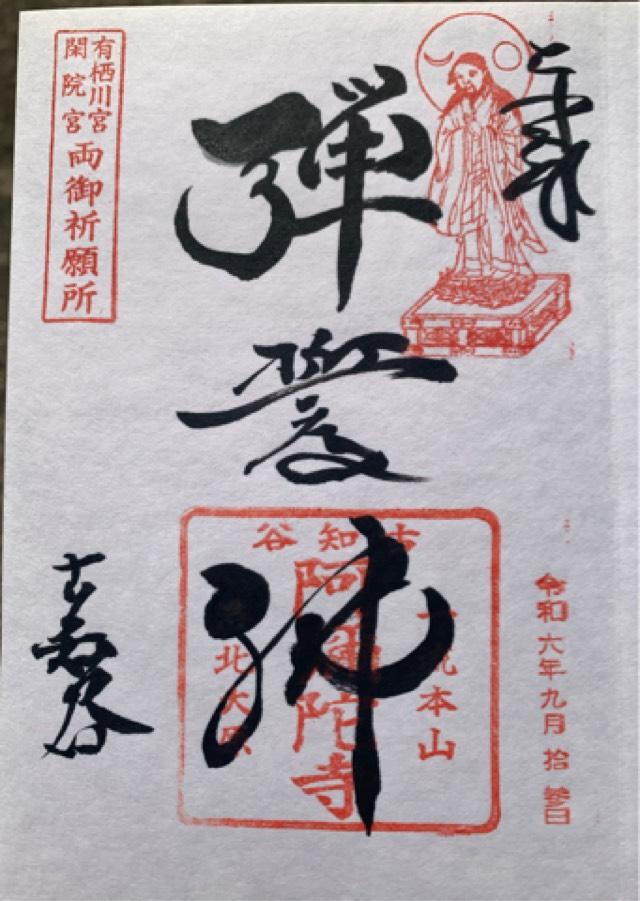 令和六年九月拾参日
彈誓佛
古知谷
一流本山
阿彌陀寺
北大原
古知谷
有栖川宮
閑院宮
両御祈願所